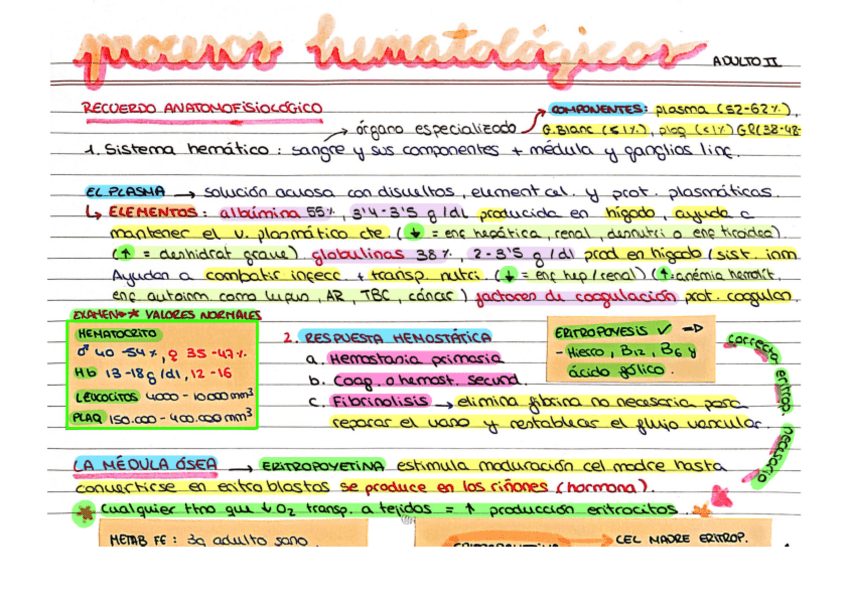 procesos hematológicos ADULTO II
RECUERDO ANATOMOFISIOLÓGICO
COMPONENTES: plasma (52-62%),
→ órgano especializado G.Blanc (≤1%), plaq (<1%) GR(38-48-
1. Sistema hemático: sangre y sus componentes + médula y ganglios linf.
EL PLASMA → solución acuosa con disueltos, element cel. y prot. plasmáticas.
↳ ELEMENTOS: albúmina 55%, 3'4-3'5 g/dl producida en hígado, ayuda a
mantener el v. plasmático cte. (↓ = enf hepática, renal, desnutri o enf tiroidea)
(↑ = deshidrat grave). globulinas 38%, 2-3'5 g/dl prod en hígado (sist. inm
Ayudan a combatir infecc + transp. nutri. (↓ = enf hep/renal) (↑=anémia hemolít,
enf. autoinm como lupus, AR, TBC, cáncer) factores de coagulación prot. coagulan.
EXAMEN→* VALORES NORMALES
HEMATOCRITO
♂ 40-54%, ♀ 35-47%
Hb 13-18g/dl, 12-16
LEUCOCITOS 4000-10000mm³
PLAQ 150.000-400.000mm³
2. RESPUESTA HEMOSTÁTICA
a. Hemostasia primaria
b. Coag. o hemost. secund.
c. Fibrinolisis → elimina fibrina no necesaria para
reparar el vaso y restablecer el flujo vascular.
ERITROPOYESIS ✓ →
- Hierro, B12, B6 y
ácido fólico.
correcta eritrop. necesario
LA MÉDULA ÓSEA → ERITROPOYETINA estimula maduración cel madre hasta
convertirse en eritroblastos se produce en los riñones (hormona).
* Cualquier ttno que ↓O2 transp. a tejidos = ↑ producción eritrocitos. *
METAB FE: 3g adulto sano.
ERITROPOYETINA → CEL MADRE ERITROP.